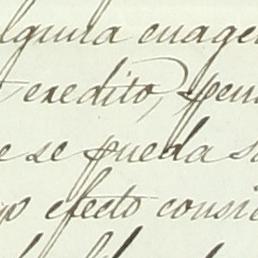 lguna enage
credito, pen
e se pueda s
efecto consi